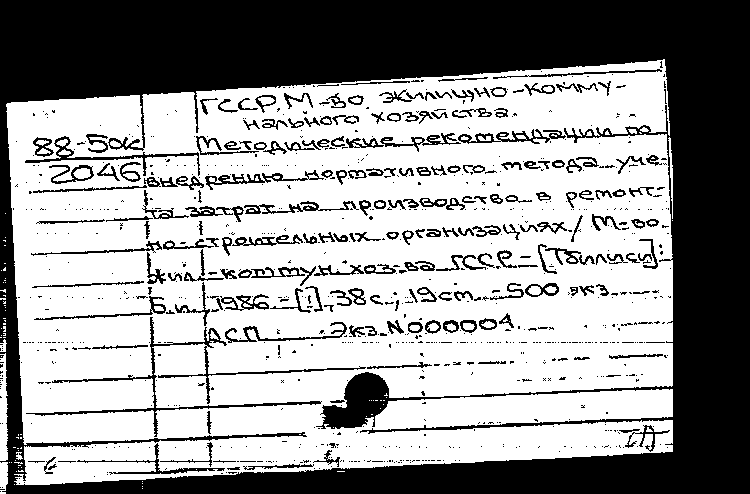 ГССР. М-во жилищно-комму-
нального хозяйства.
88-5ок
Методические рекомендации по
2046
внедрению нормативного метода уче-
та затрат на производство в ремонт-
но-строительных организациях / М-во
жил.-коммун. хоз-ва ГССР. - [Тбилиси]:
Б.и., 1986. - [;], 38 с.; 19 см. - 500 экз.
ДСП. Экз. N000004.